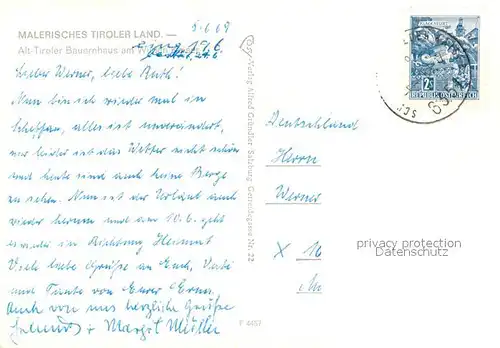 MALERISCHES TIROLER LAND. —
Alt-Tiroler Bauernhaus am Wilden Kaiser
5.6.69
eing. 19.6.
Lieber Werner, liebe Ruth!
Nun bin ich wieder mal im
Scheffau, alles ist unverändert,
nur leider ist das Wetter nicht schön
und heute sind auch keine Berge
zu sehen. Nun ist der Urlaub auch
wieder herum und am 10.6. geht
es wieder in Richtung Heimat
Viele liebe Grüße an Euch,
und Tante von Eurer Erna.
Auch von uns herzliche Grüße
+ Margot Müller
Cosy-Verlag Alfred Gründler Salzburg Getreidegasse Nr. 22
F 4457
2S
REPUBLIK ÖSTERREICH
Deutschland
Herrn
Werner
X 16
privacy protection
Datenschutz